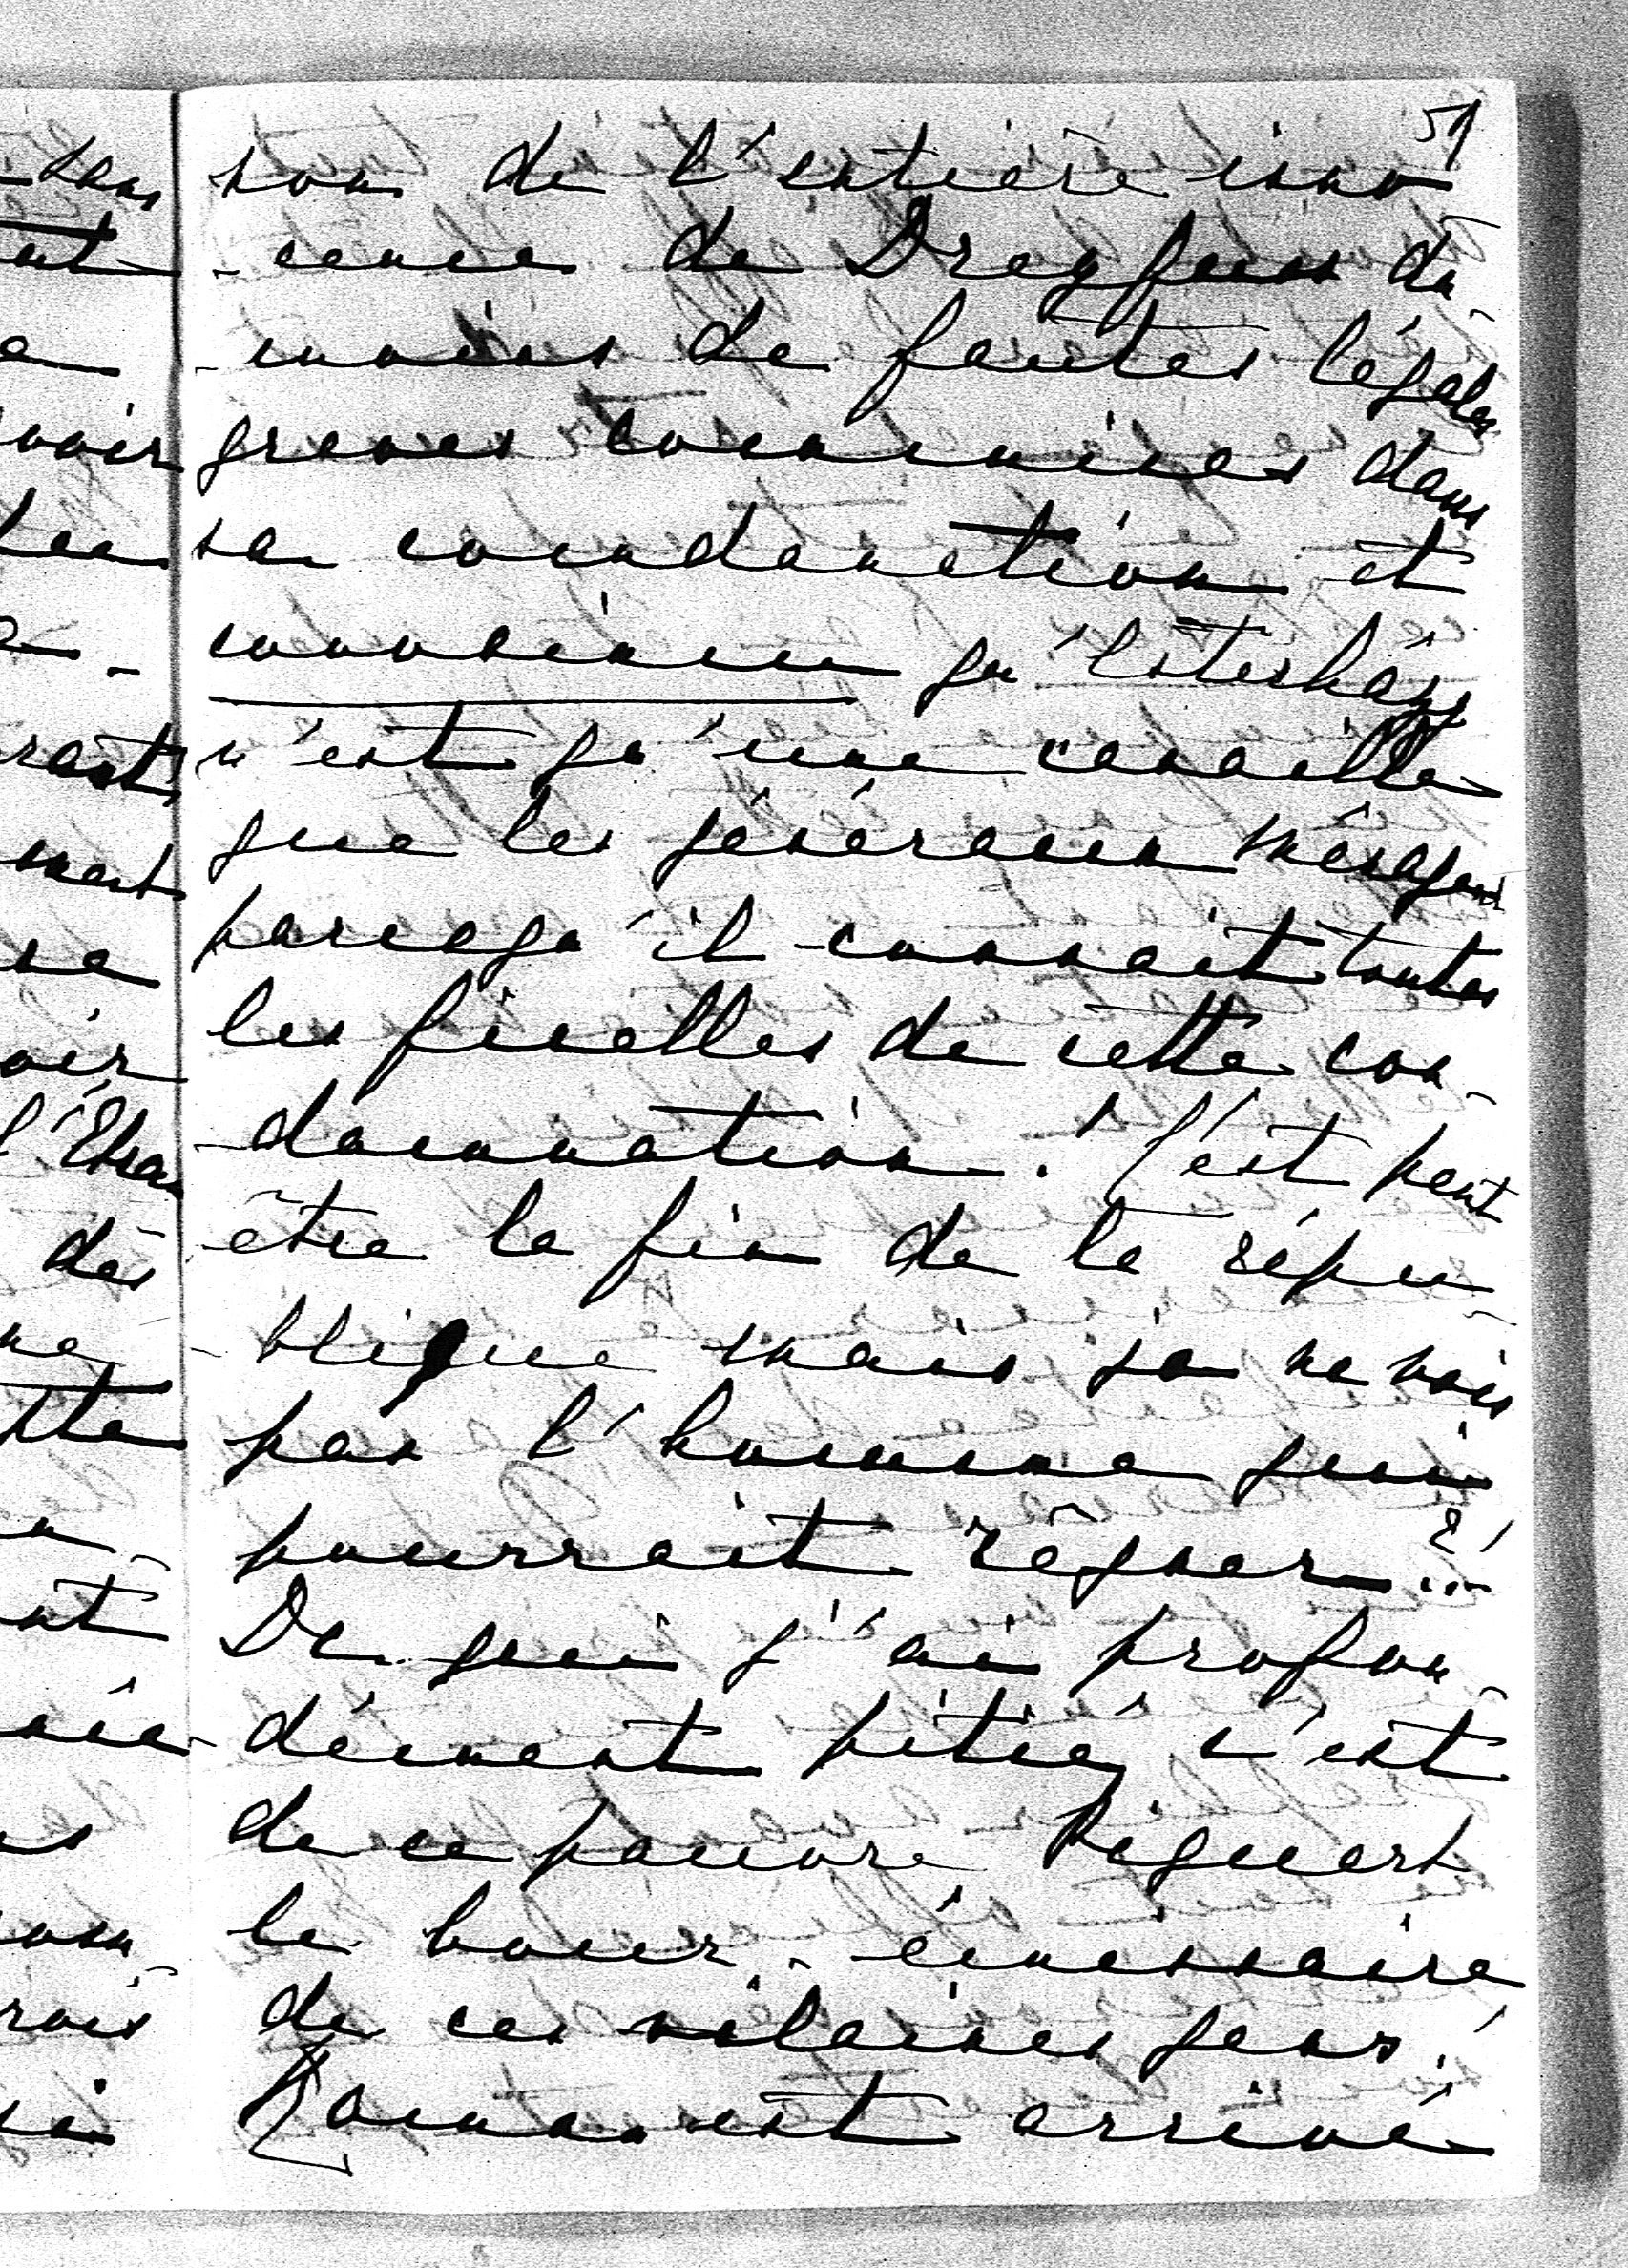 51
son de l'entière inno
-cence de Dreyfuss du
-moins de fautes légales
graves commises dans
sa condamnation et
convaincu qu'Esterházy
n'est qu'une canaille
que les généraux ménagent
parcequ'il connait toutes
les ficelles de cette con-
-damnation! C'est peut
être la fin de la répu
-blique mais je ne vois
pas l'homme qui
pourrait régner?!...
De qui j'ai profon
dément pitié, c'est
de ce pauvre Piquart
le bouc-émissaire
de ces vilaines gens!
est arrivé